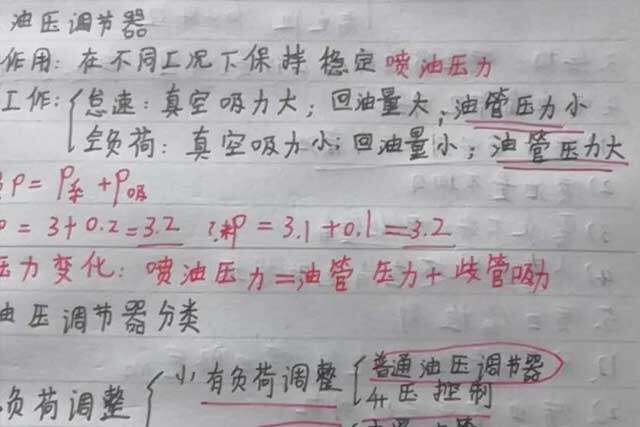 油压调节器
作用：在不同工况下保持稳定喷油压力
工作：怠速：真空吸力大；回油量大；油管压力小
全负荷：真空吸力小；回油量小；油管压力大
P=P系+P吸
P=3+0.2=3.2 P=3.1+0.1=3.2
压力变化：喷油压力=油管压力+歧管吸力
油压调节器分类
负荷调整 1) 有负荷调整 普通油压调节器
压控制